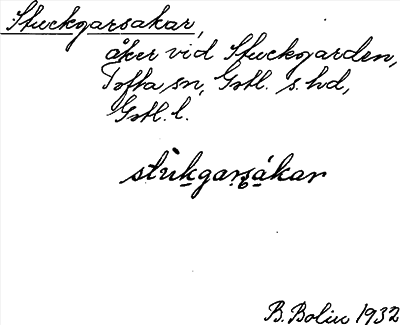 Stuckgarsakar,
åker vid Stuckgarden,
Tofta sn, Gotl. s. hd,
Gotl. l.
stùkgarsákar
B. Bolin 1932